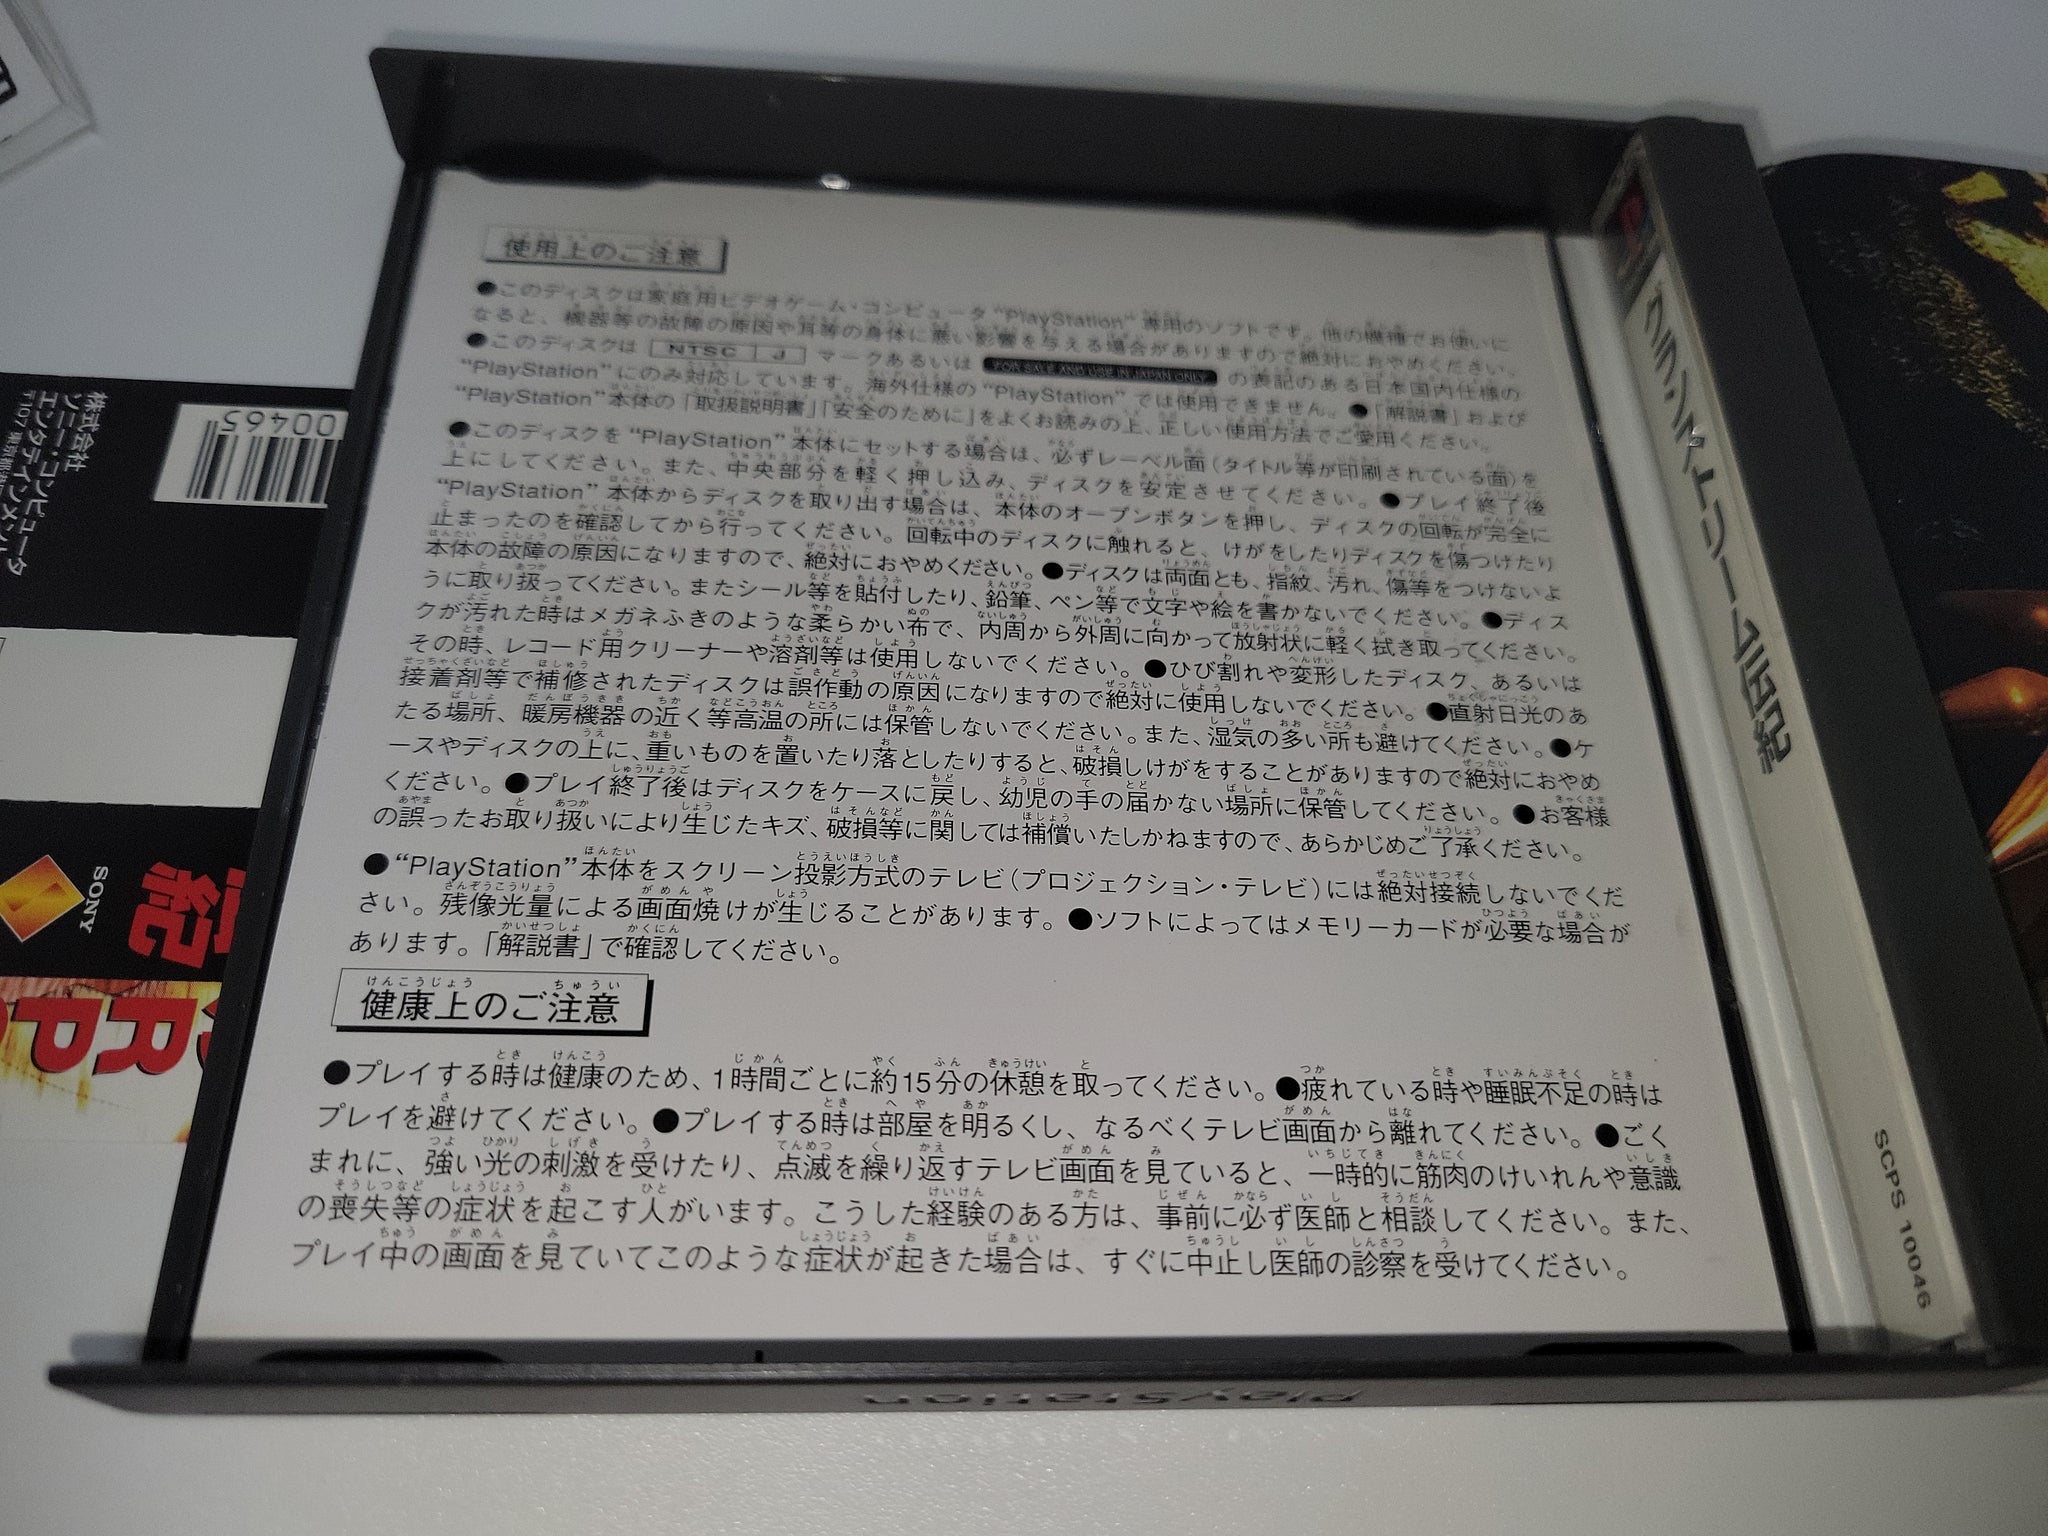 使用上のご注意
●このディスクは家庭用ビデオゲーム・コンピュータ“PlayStation”専用のソフトです。他の機種でお使いに
なると、機器等の故障の原因や耳等の身体に悪い影響を与える場合がありますので絶対におやめください。
●このディスクは NTSC J マークあるいは FOR SALE AND USE IN JAPAN ONLY の表記のある日本国内仕様の
“PlayStation”にのみ対応しています。海外仕様の“PlayStation”では使用できません。●「解説書」および
“PlayStation”本体の「取扱説明書」「安全のために」をよくお読みの上、正しい使用方法でご愛用ください。
●このディスクを“PlayStation”本体にセットする場合は、必ずレーベル面(タイトル等が印刷されている面)を
上にしてください。また、中央部分を軽く押し込み、ディスクを安定させてください。●プレイ終了後
“PlayStation”本体からディスクを取り出す場合は、本体のオープンボタンを押し、ディスクの回転が完全に
止まったのを確認してから行ってください。回転中のディスクに触れると、けがをしたりディスクを傷つけたり
本体の故障の原因になりますので、絶対におやめください。●ディスクは両面とも、指紋、汚れ、傷等をつけないよ
うに取り扱ってください。またシール等を貼付したり、鉛筆、ペン等で文字や絵を書かないでください。●ディス
クが汚れた時はメガネふきのような柔らかい布で、内周から外周に向かって放射状に軽く拭き取ってください。
その時、レコード用クリーナーや溶剤等は使用しないでください。●ひび割れや変形したディスク、あるいは
接着剤等で補修されたディスクは誤作動の原因になりますので絶対に使用しないでください。●直射日光のあ
たる場所、暖房機器の近く等高温の所には保管しないでください。また、湿気の多い所も避けてください。●ケ
ースやディスクの上に、重いものを置いたり落としたりすると、破損しけがをすることがありますので絶対におやめ
ください。●プレイ終了後はディスクをケースに戻し、幼児の手の届かない場所に保管してください。●お客様
の誤ったお取り扱いにより生じたキズ、破損等に関しては補償いたしかねますので、あらかじめご了承ください。
●“PlayStation”本体をスクリーン投影方式のテレビ(プロジェクション・テレビ)には絶対接続しないでくだ
さい。残像光量による画面焼けが生じることがあります。●ソフトによってはメモリーカードが必要な場合が
あります。「解説書」で確認してください。
健康上のご注意
●プレイする時は健康のため、1時間ごとに約15分の休憩を取ってください。●疲れている時や睡眠不足の時は
プレイを避けてください。●プレイする時は部屋を明るくし、なるべくテレビ画面から離れてください。●ごく
まれに、強い光の刺激を受けたり、点滅を繰り返すテレビ画面を見ていると、一時的に筋肉のけいれんや意識
の喪失等の症状を起こす人がいます。こうした経験のある方は、事前に必ず医師と相談してください。また、
プレイ中の画面を見ていてこのような症状が起きた場合は、すぐに中止し医師の診察を受けてください。
PlayStation
グランストリーム伝紀
SCPS 10046
株式会社
ソニー・コンピュータ
エンタテインメント
00465
SONY
紀
RP